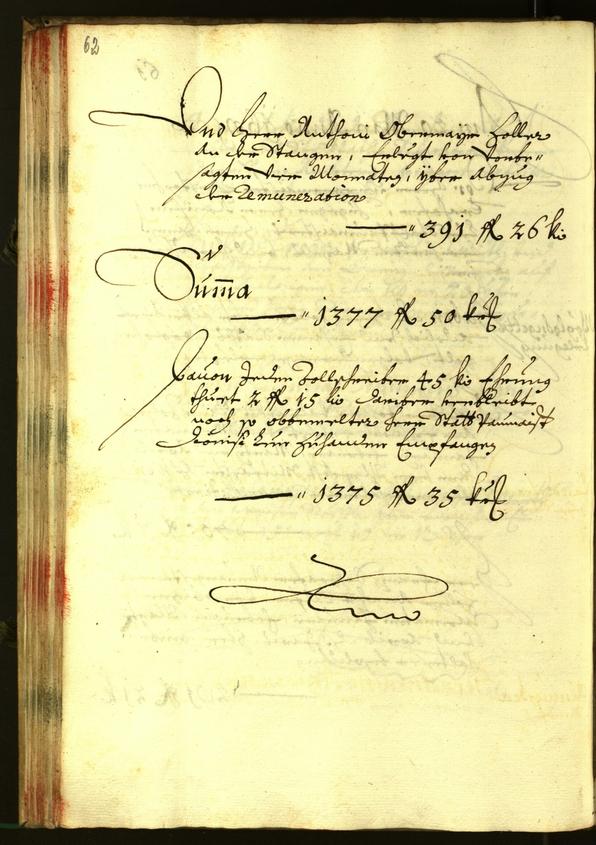 62
Und Herr Anthoni Obermayr Zoller
an der Stangen, Erlegt von vorbe-
sagten vier Monnaten, yber Abzug
der Remuneration
391 fl 26 kr
Suma
1377 fl 50 kr
Dauon Jeden Zollschreiber 45 kr Ehrung
thuet 2 fl 15 kr darüber verbleibt
noch so obbemelter Herr Statt Paumaister
zuhanden Empfangen
1375 fl 35 kr